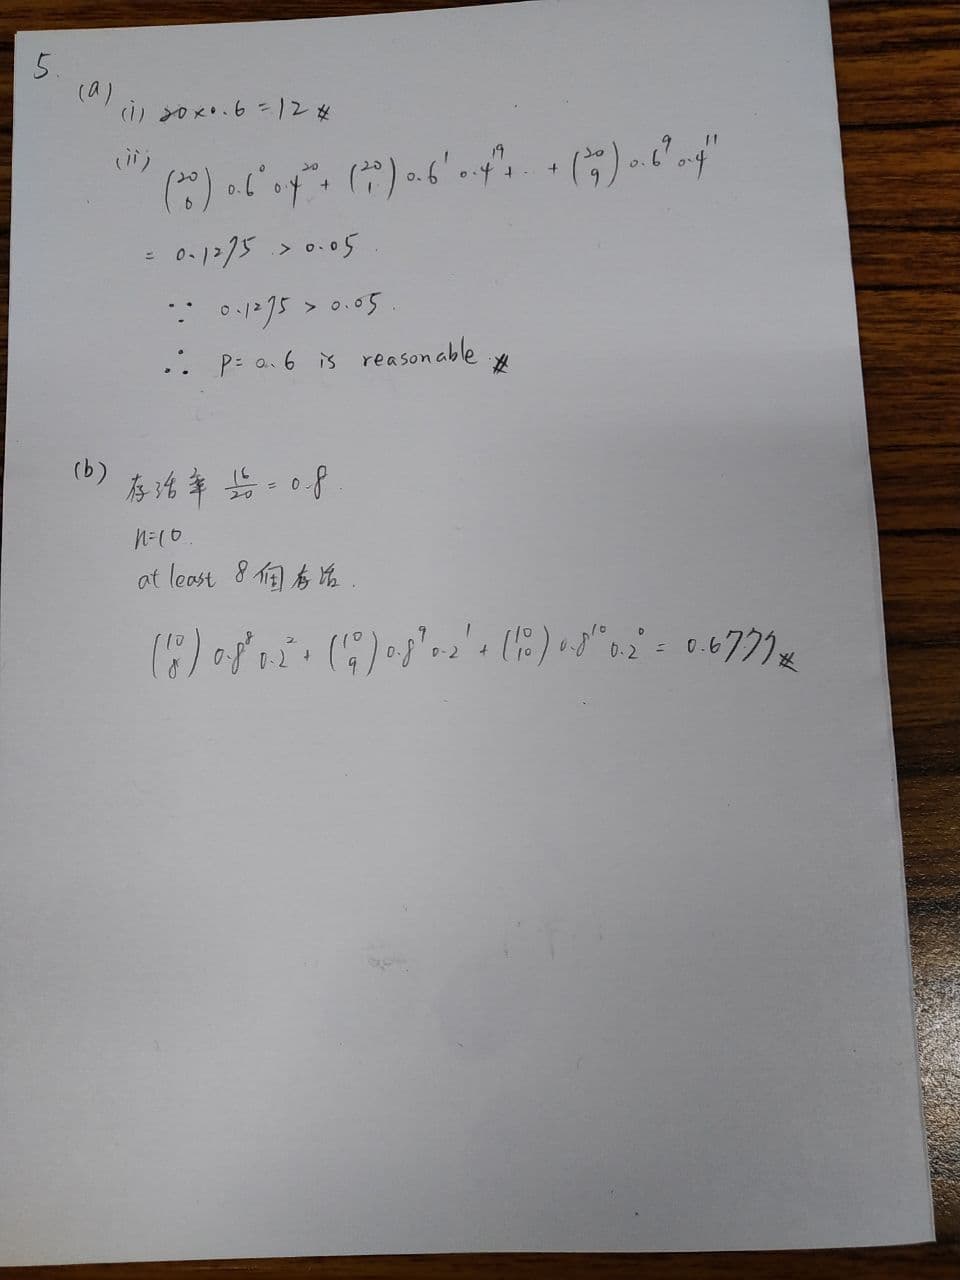 5.
(a)
(i) 20×0.6=12 #
(ii)
(20 0) 0.6⁰ 0.4²⁰ + (20 1) 0.6¹ 0.4¹⁹ + .. + (20 9) 0.6⁹ 0.4¹¹
= 0.1275 > 0.05.
∵ 0.1275 > 0.05.
∴ P=0.6 is reasonable #
(b)
存活率 16/20 = 0.8.
n=10.
at least 8個存活.
(10 8) 0.8⁸ 0.2² + (10 9) 0.8⁹ 0.2¹ + (10 10) 0.8¹⁰ 0.2⁰ = 0.6777 #